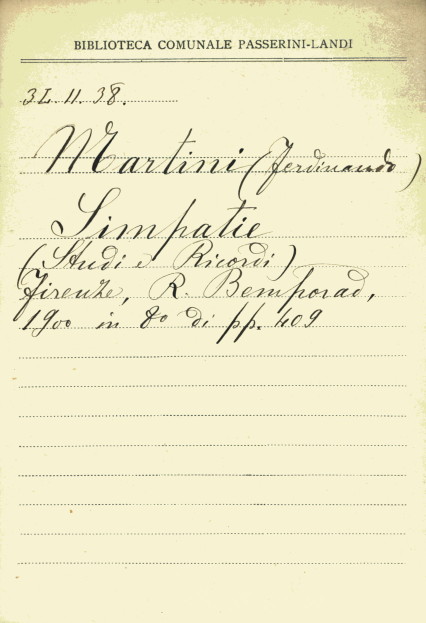 BIBLIOTECA COMUNALE PASSERINI-LANDI
3L.11.38.
Martini (Ferdinando)
Simpatie
(Studi e Ricordi)
Firenze, R. Bemporad,
1900 in 8º di pp. 409